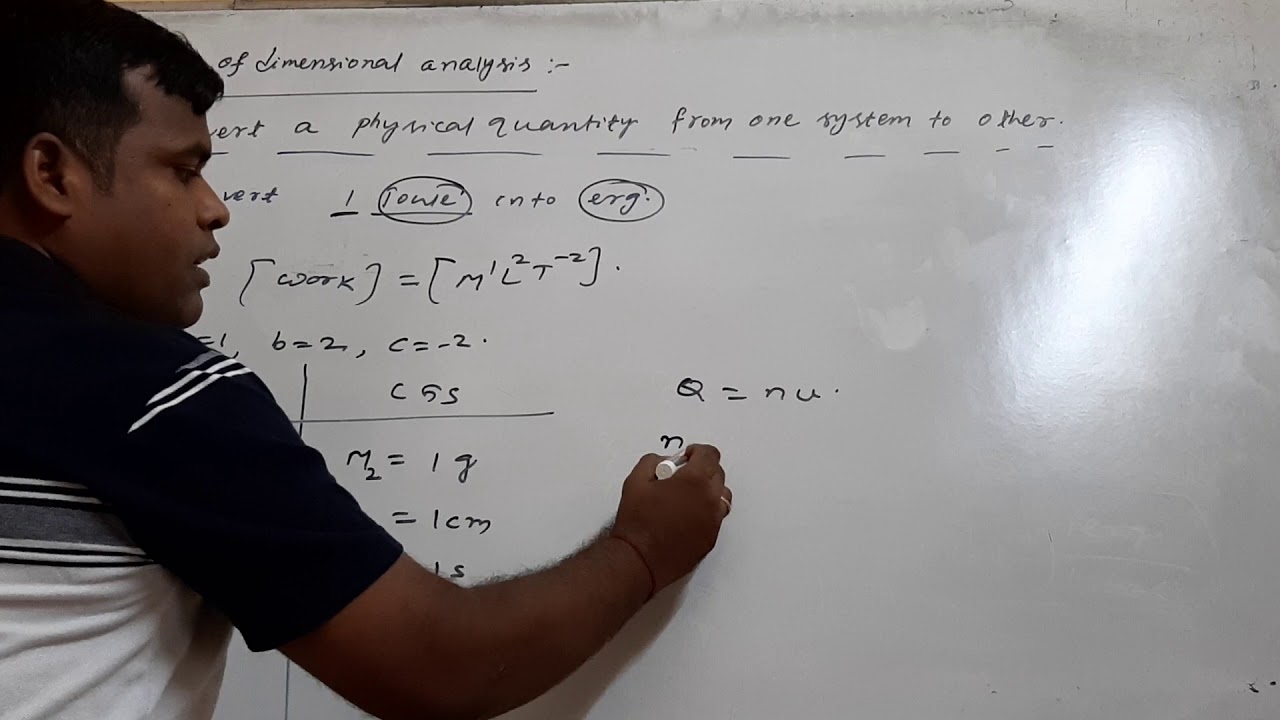 of dimensional analysis :-
vert a physical quantity from one system to other.
vert 1 Joule into erg.
[work] = [M¹L²T⁻²].
=1, b=2, c=-2.
CGS
M₂ = 1 g
= 1 cm
1 s
Q = nu.
n